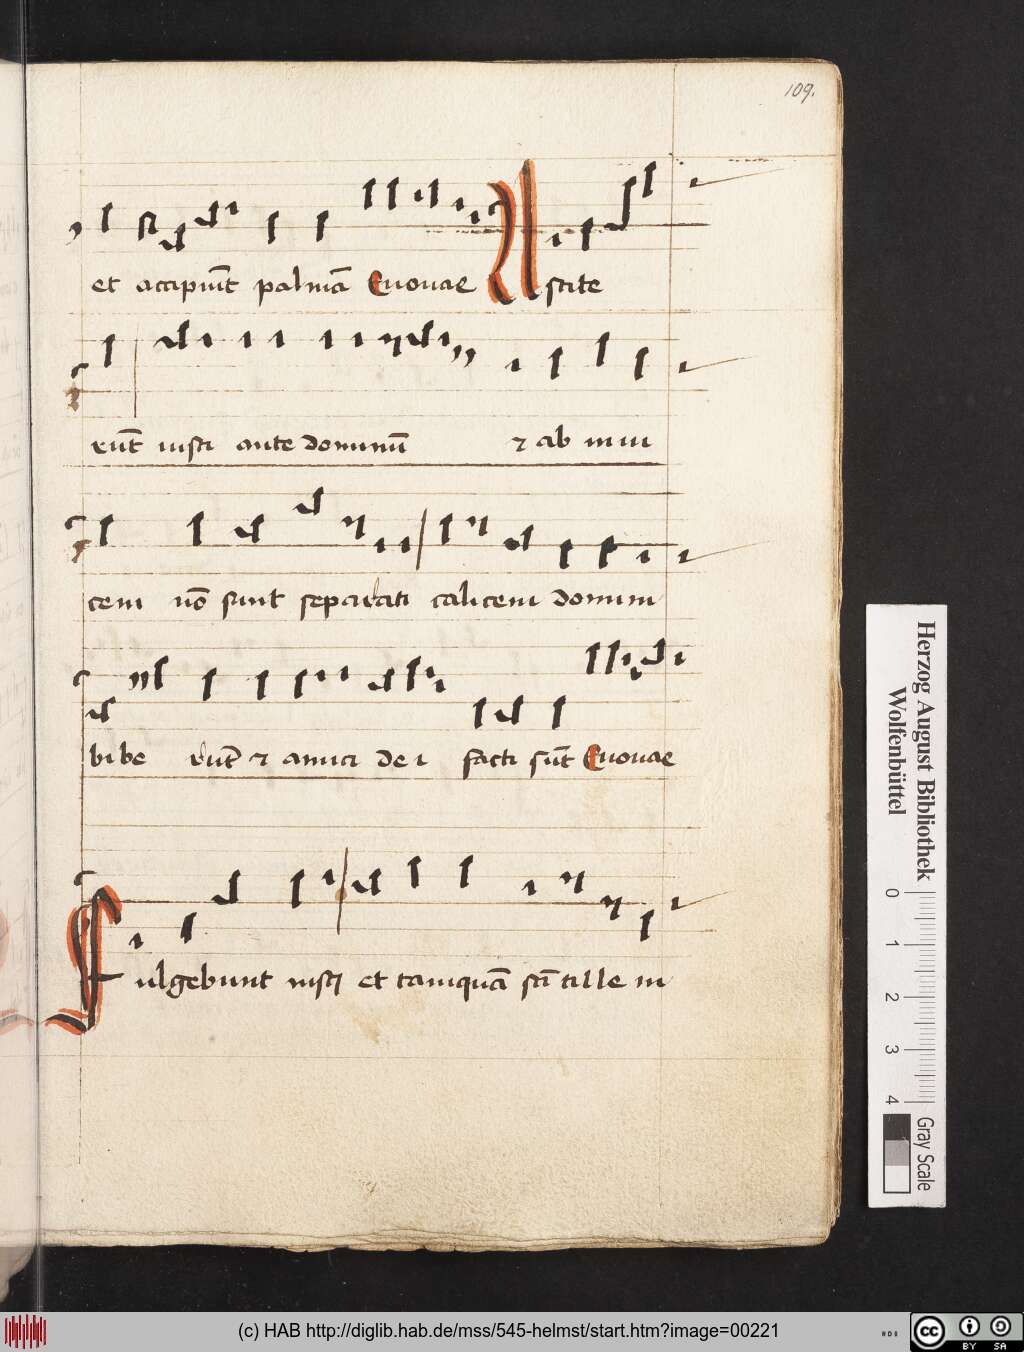 109.
et accipiūt palmā Euouae Astite
rūt iusti ante dominū ⁊ ab inui
cem nō sunt separati calicem domini
biberūt ⁊ amici dei facti sūt Euouae
Fulgebunt iusti et tamquā scītille in
Herzog August Bibliothek
Wolfenbüttel
0 1 2 3 4
Gray Scale
(c) HAB http://diglib.hab.de/mss/545-helmst/start.htm?image=00221
cc BY SA